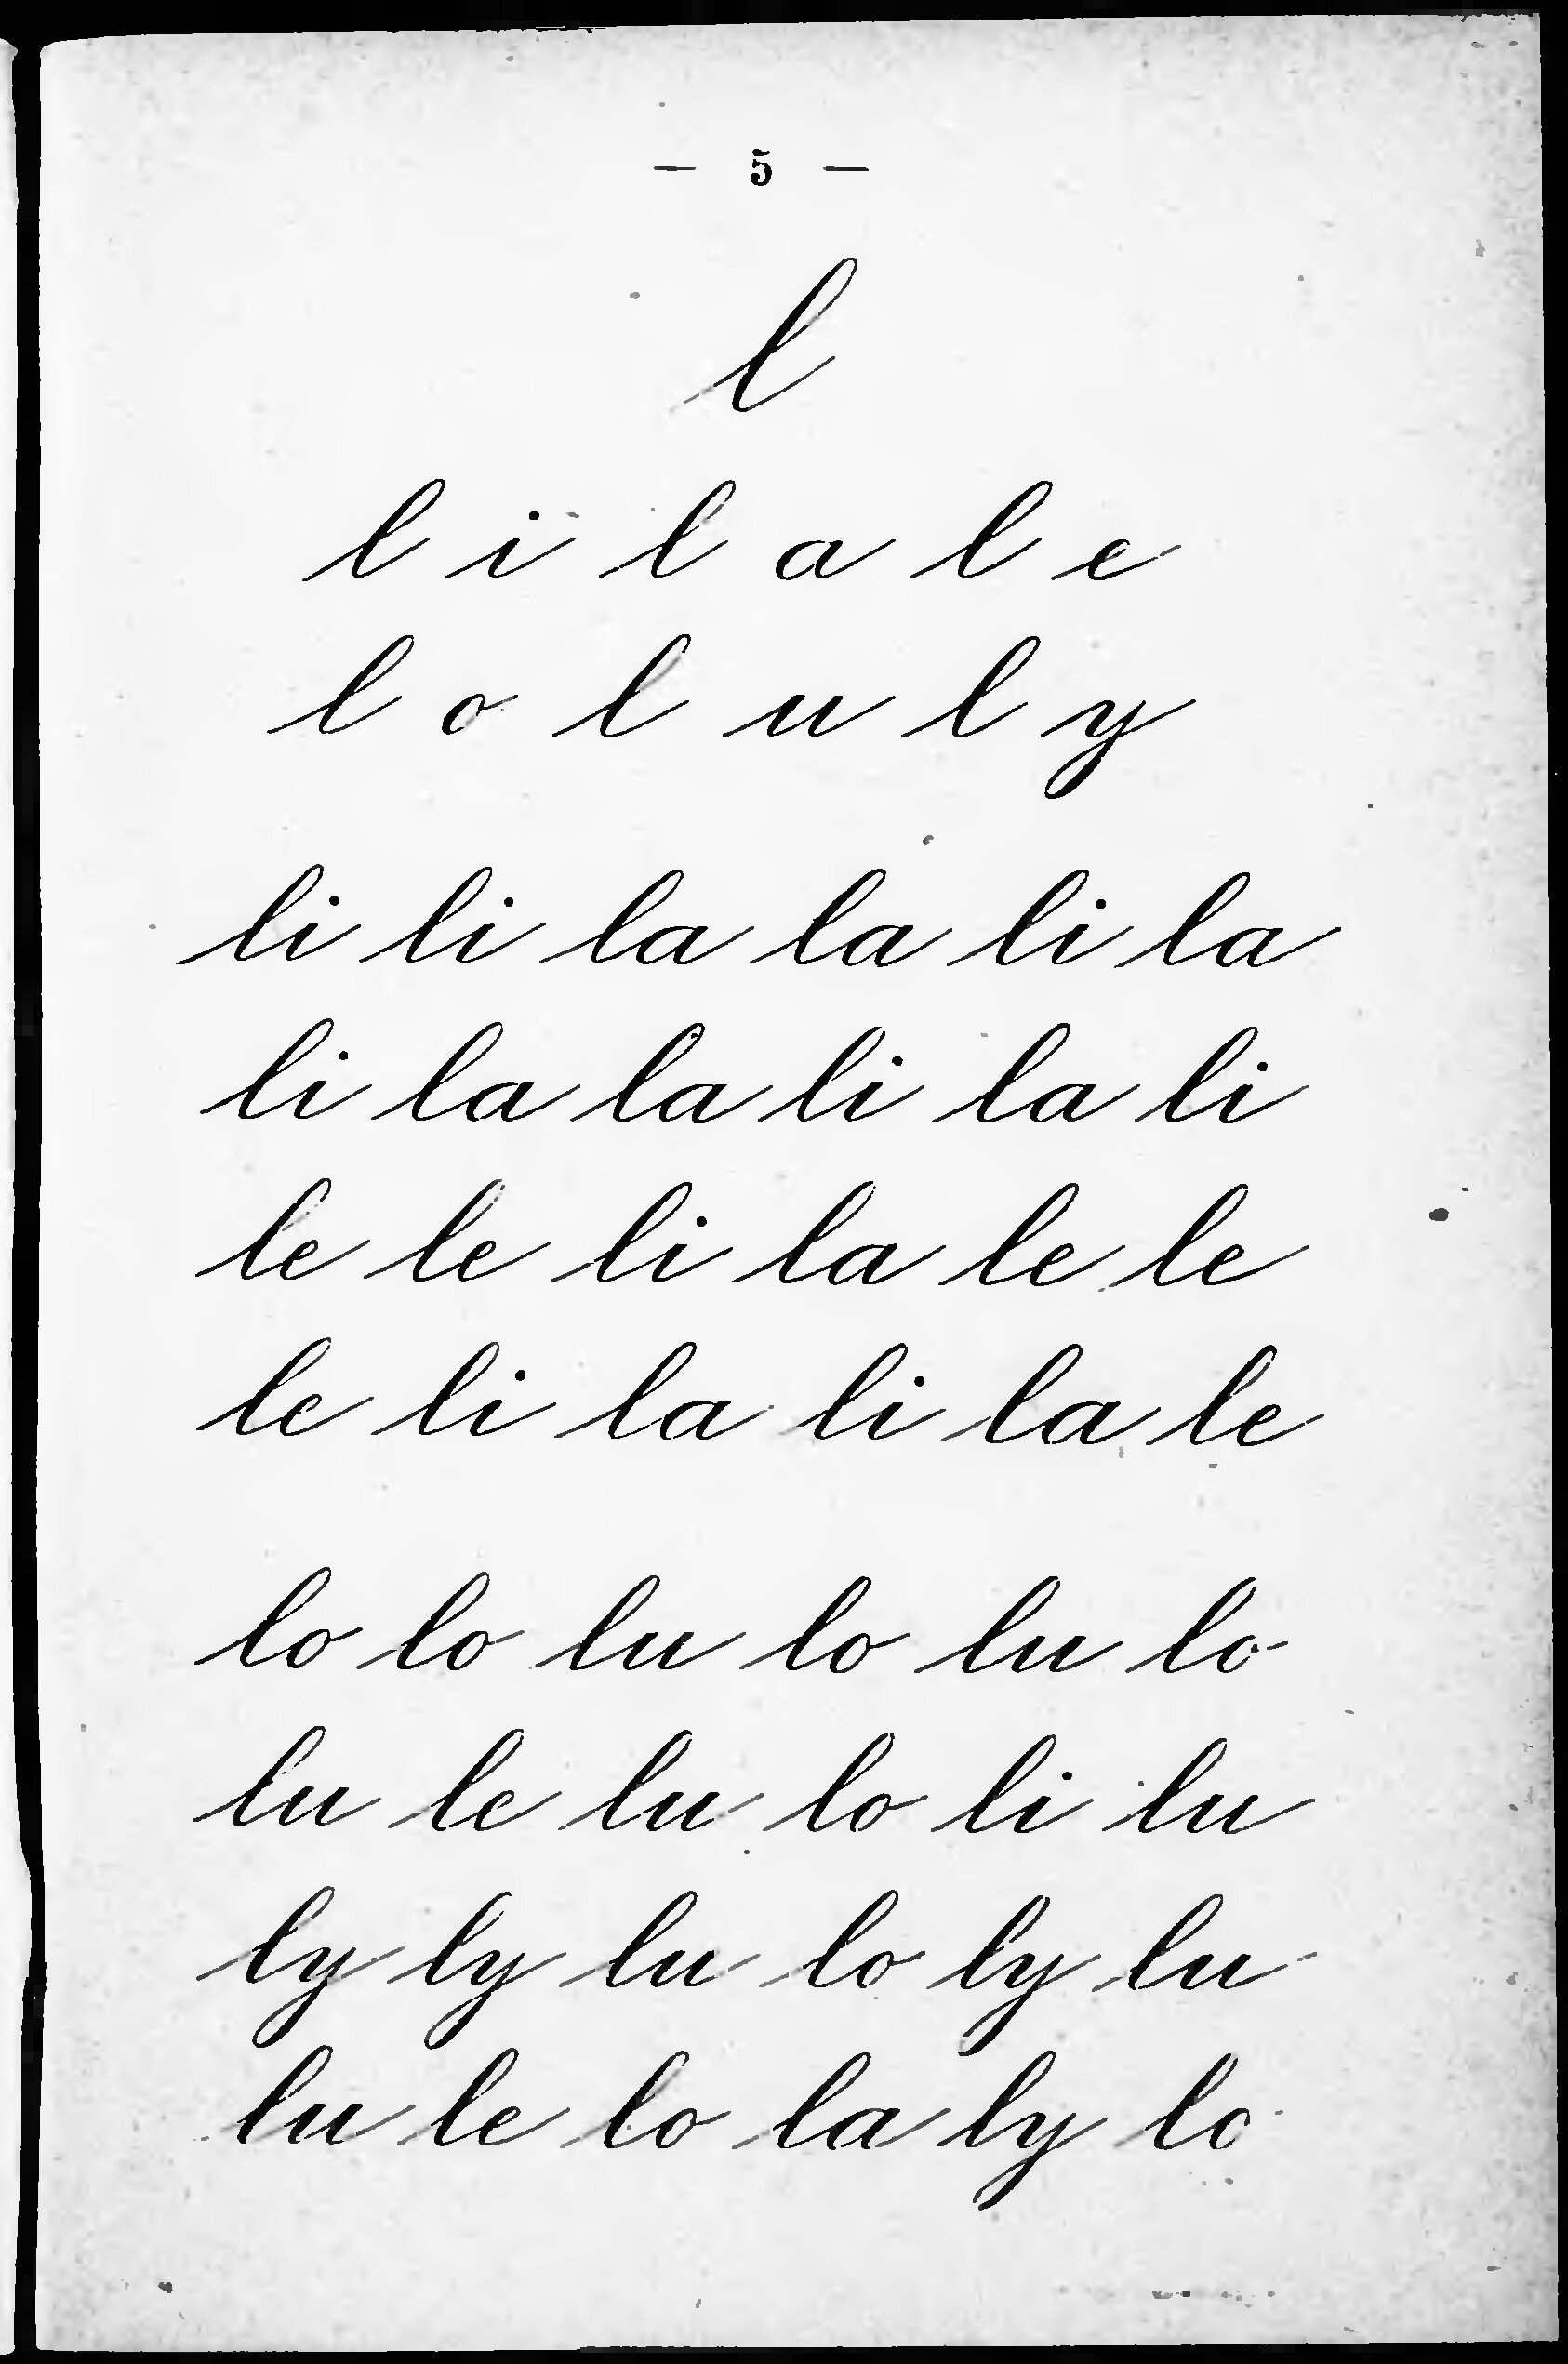 — 5 —
l
l i l a l e
l o l u l y
li li la la li la
li la la li la li
le le li la le le
le li la li la le
lo lo lu lo lu lo
lu le lu lo li lu
ly ly lu lo ly lu
lu le lo la ly lo